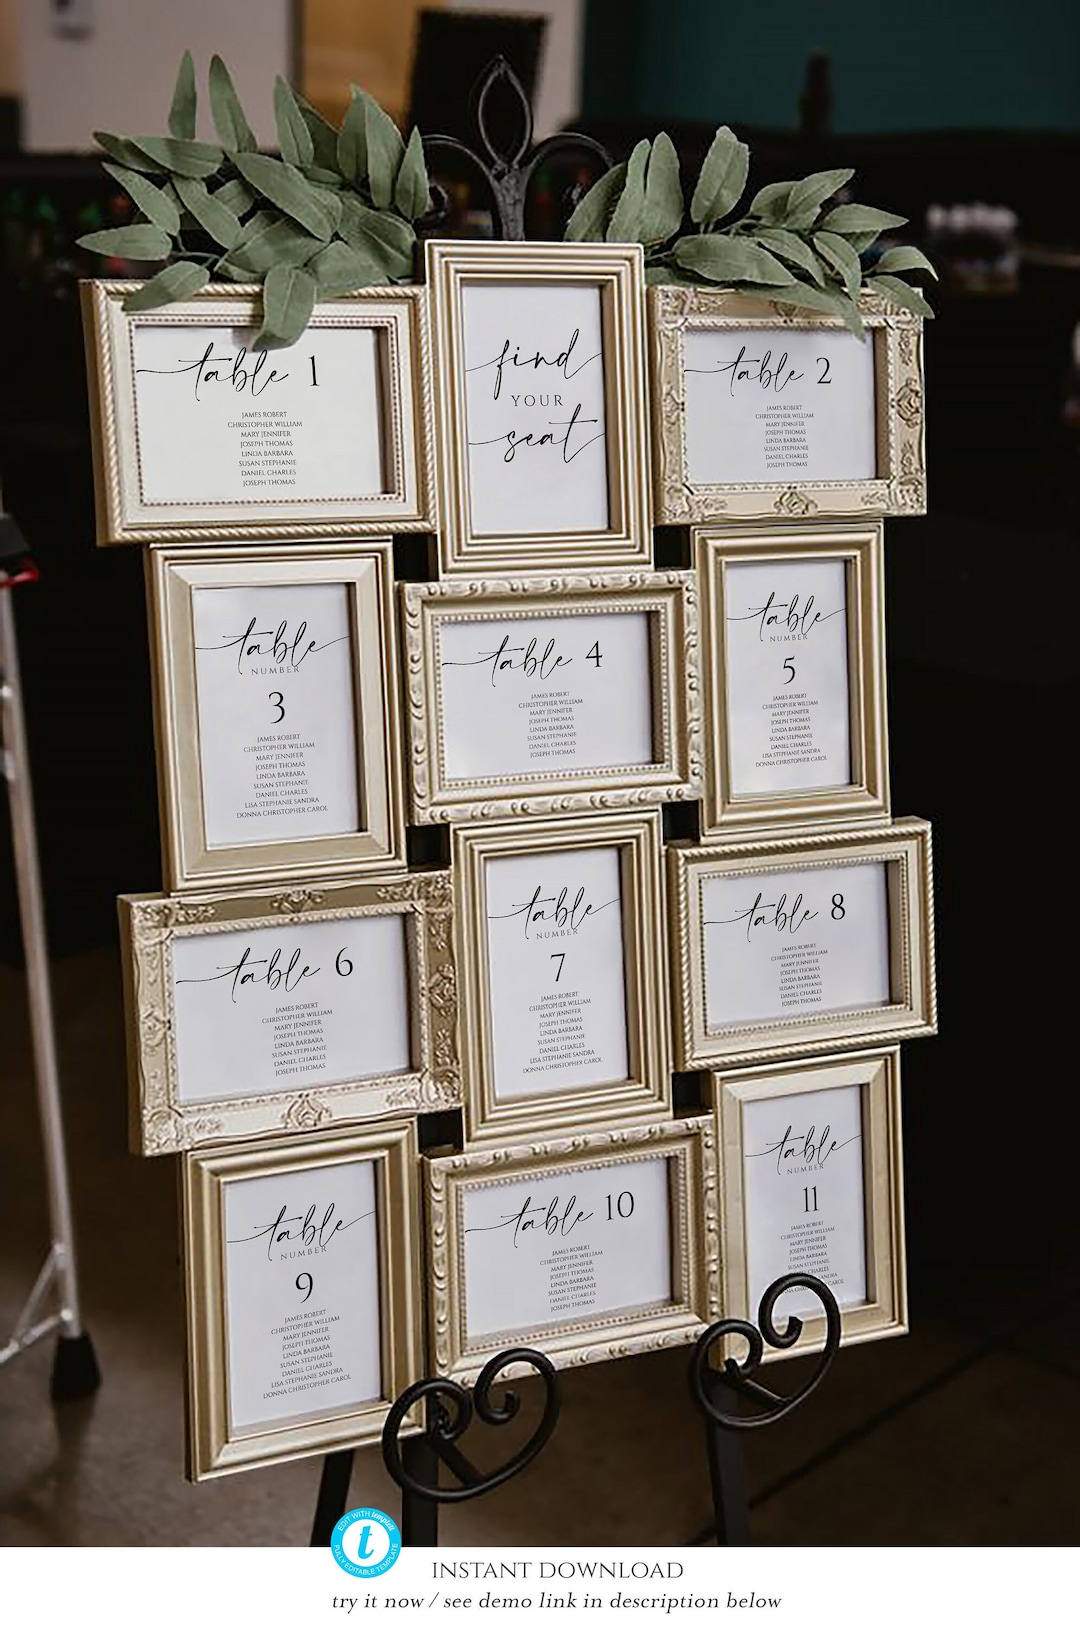 table 1
JAMES ROBERT
CHRISTOPHER WILLIAM
MARY JENNIFER
JOSEPH THOMAS
LINDA BARBARA
SUSAN STEPHANIE
DANIEL CHARLES
JOSEPH THOMAS
find
YOUR
seat
table 2
JAMES ROBERT
CHRISTOPHER WILLIAM
MARY JENNIFER
JOSEPH THOMAS
LINDA BARBARA
SUSAN STEPHANIE
DANIEL CHARLES
JOSEPH THOMAS
table
NUMBER
3
JAMES ROBERT
CHRISTOPHER WILLIAM
MARY JENNIFER
JOSEPH THOMAS
LINDA BARBARA
SUSAN STEPHANIE
DANIEL CHARLES
LISA STEPHANIE SANDRA
DONNA CHRISTOPHER CAROL
table 4
JAMES ROBERT
CHRISTOPHER WILLIAM
MARY JENNIFER
JOSEPH THOMAS
LINDA BARBARA
SUSAN STEPHANIE
DANIEL CHARLES
JOSEPH THOMAS
table
NUMBER
5
JAMES ROBERT
CHRISTOPHER WILLIAM
MARY JENNIFER
JOSEPH THOMAS
LINDA BARBARA
SUSAN STEPHANIE
DANIEL CHARLES
LISA STEPHANIE SANDRA
DONNA CHRISTOPHER CAROL
table 6
JAMES ROBERT
CHRISTOPHER WILLIAM
MARY JENNIFER
JOSEPH THOMAS
LINDA BARBARA
SUSAN STEPHANIE
DANIEL CHARLES
JOSEPH THOMAS
table
NUMBER
7
JAMES ROBERT
CHRISTOPHER WILLIAM
MARY JENNIFER
JOSEPH THOMAS
LINDA BARBARA
SUSAN STEPHANIE
DANIEL CHARLES
LISA STEPHANIE SANDRA
DONNA CHRISTOPHER CAROL
table 8
JAMES ROBERT
CHRISTOPHER WILLIAM
MARY JENNIFER
JOSEPH THOMAS
LINDA BARBARA
SUSAN STEPHANIE
DANIEL CHARLES
JOSEPH THOMAS
table
NUMBER
9
JAMES ROBERT
CHRISTOPHER WILLIAM
MARY JENNIFER
JOSEPH THOMAS
LINDA BARBARA
SUSAN STEPHANIE
DANIEL CHARLES
LISA STEPHANIE SANDRA
DONNA CHRISTOPHER CAROL
table 10
JAMES ROBERT
CHRISTOPHER WILLIAM
MARY JENNIFER
JOSEPH THOMAS
LINDA BARBARA
SUSAN STEPHANIE
DANIEL CHARLES
JOSEPH THOMAS
table
NUMBER
11
JAMES ROBERT
CHRISTOPHER WILLIAM
MARY JENNIFER
JOSEPH THOMAS
LINDA BARBARA
SUSAN STEPHANIE
EDIT WITH templett
t
FULLY EDITABLE TEMPLATE
INSTANT DOWNLOAD
try it now / see demo link in description below